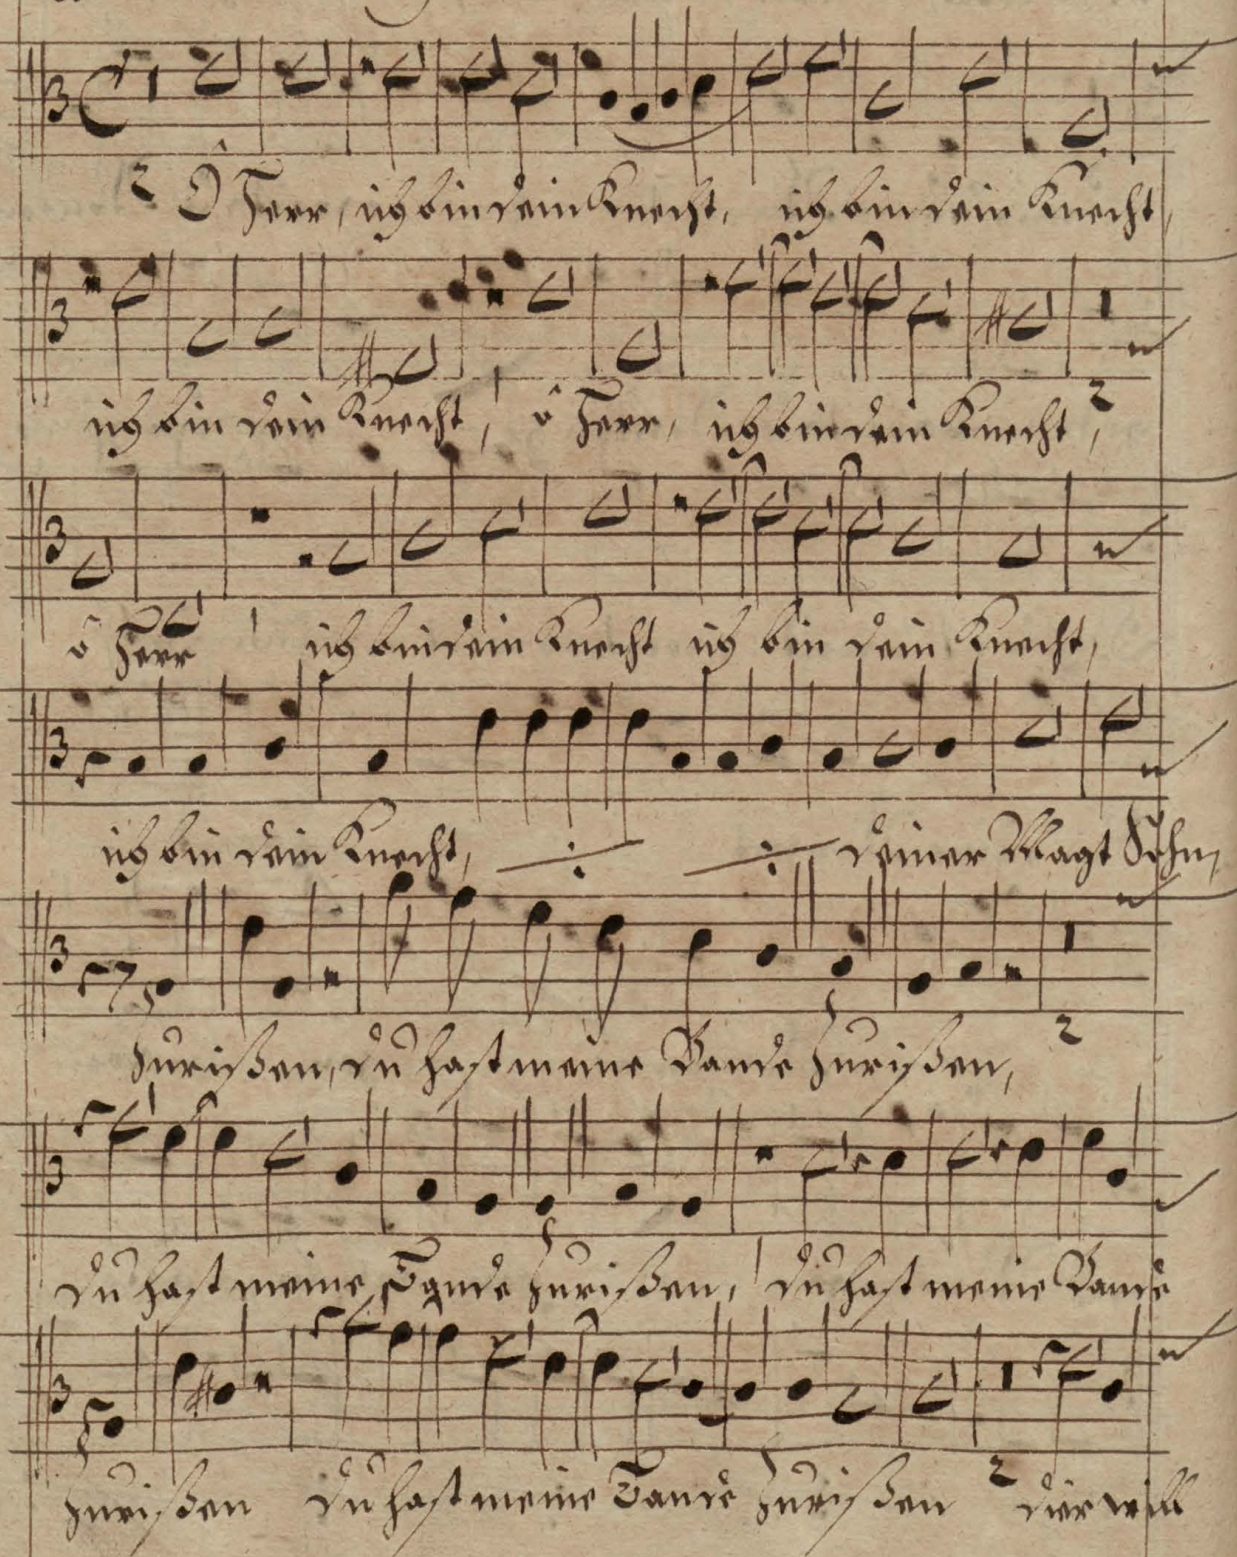 2 O Herr, ich bin dein Knecht, ich bin dein Knecht,
ich bin dein Knecht, ô Herr, ich bin dein Knecht, 2
ô Herr ich bin dein Knecht ich bin dein Knecht,
ich bin dein Knecht, ·/· ·/· deiner Magt Sohn,
zurißen, du hast meine Bande zurißen, 2
du hast meine Bande zurißen, du hast meine Bande
zurißen du hast meine Bande zurißen 2 dier will